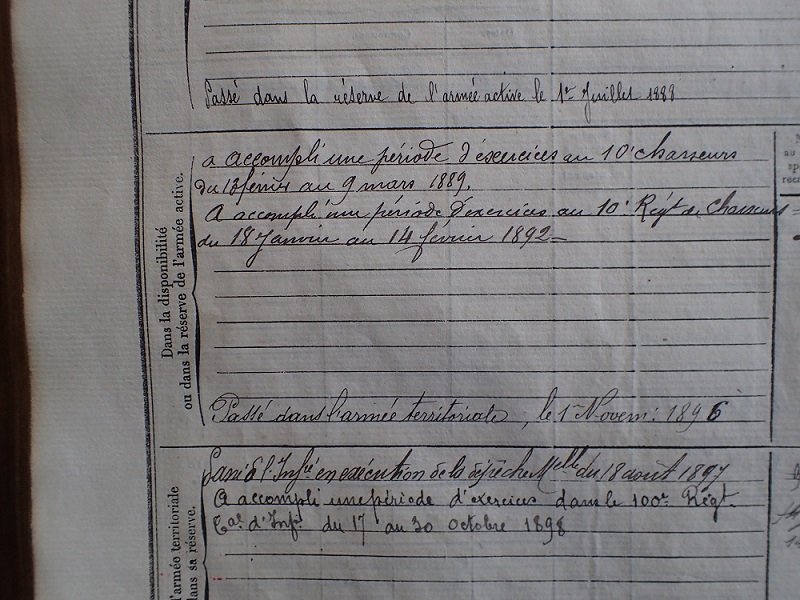 Passé dans la réserve de l'armée active le 1er Juillet 1888
Dans la disponibilité
ou dans la réserve de l'armée active.
a accompli une période d'exercices au 10e chasseurs
du 13 février au 9 mars 1889.
A accompli une période d'exercices au 10e Régt de Chasseurs
du 18 Janvier au 14 février 1892
Passé dans l'armée territoriale, le 1er Novem: 1896
l'armée territoriale
dans sa réserve.
Passé à l'Infie en exécution de la dépêche Melle du 18 août 1897
A accompli une période d'exercices dans le 100e Régt.
Tal d'Infie du 17 au 30 octobre 1898